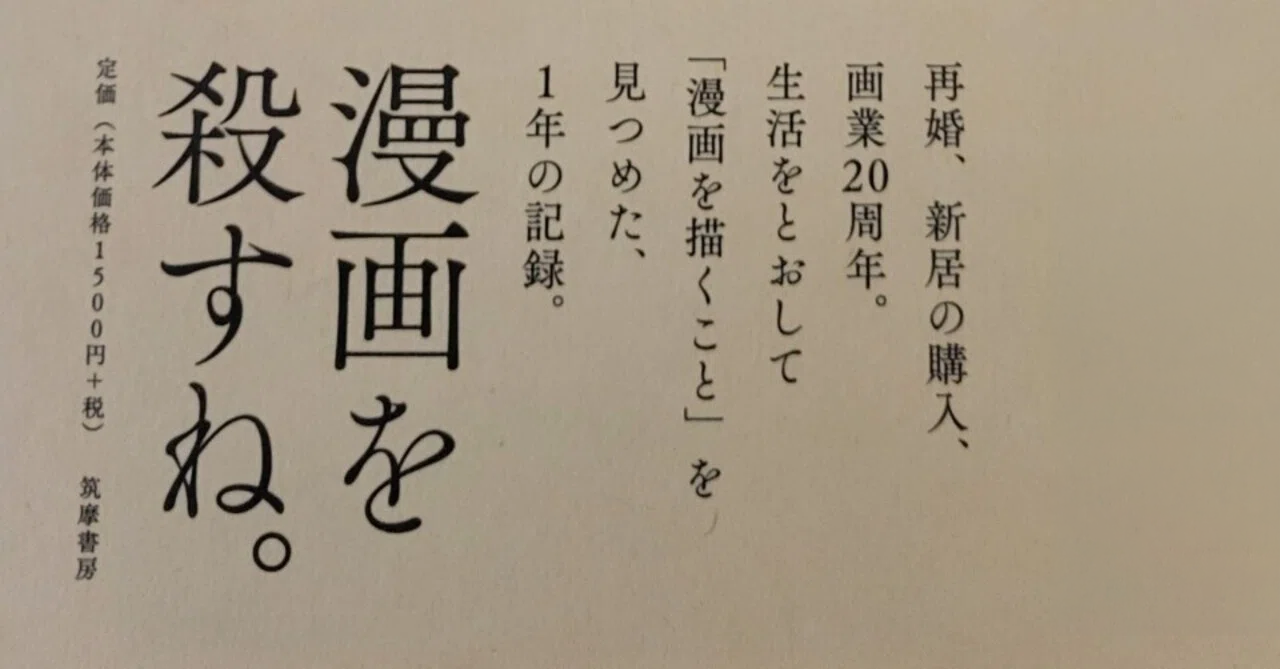 再婚、新居の購入、
画業20周年。
生活をとおして
「漫画を描くこと」を
見つめた、
1年の記録。
漫画を
殺すね。
定価(本体価格1500円+税) 筑摩書房